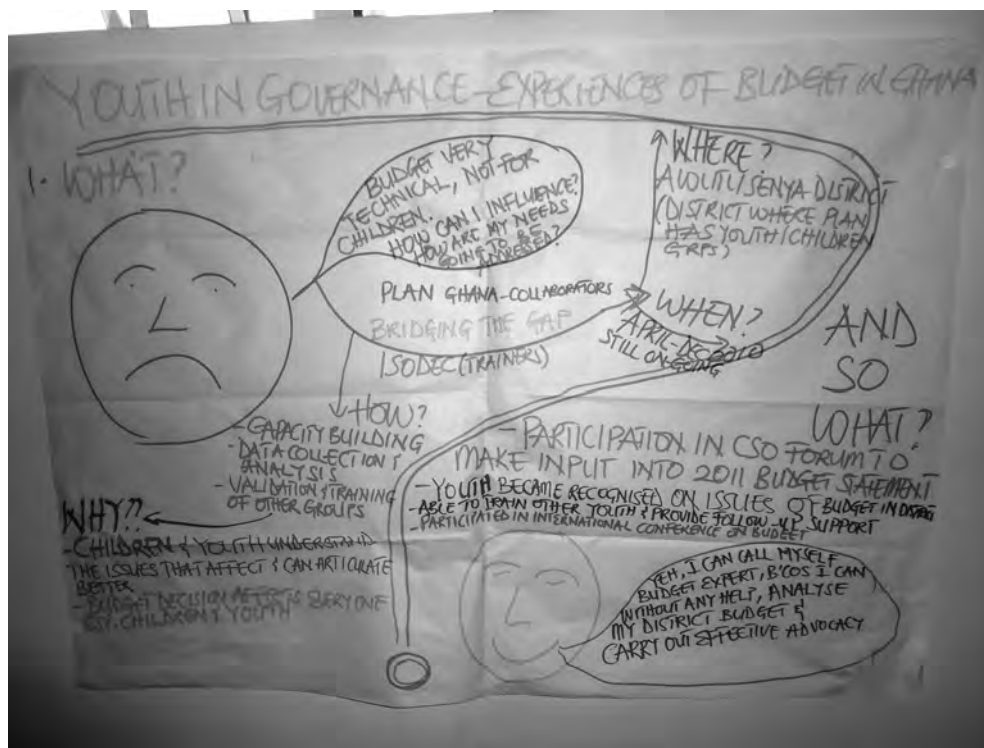 YOUTH IN GOVERNANCE - EXPERIENCES OF BUDGET IN GHANA
1. WHAT?
BUDGET VERY
TECHNICAL, NOT FOR
CHILDREN.
HOW CAN I INFLUENCE?
HOW ARE MY NEEDS
GOING TO BE
ADDRESSED?
PLAN GHANA-COLLABORATORS
BRIDGING THE GAP
ISODEC (TRAINERS)
WHERE?
AWUTU SENYA-DISTRICT
(DISTRICT WHERE PLAN
HAS YOUTH/CHILDREN
GRPS)
WHEN?
APRIL-DEC 2010
STILL ON-GOING
HOW?
- CAPACITY BUILDING
- DATA COLLECTION &
ANALYSIS
- VALIDATION & TRAINING
OF OTHER GROUPS
WHY??
- CHILDREN & YOUTH UNDERSTAND
THE ISSUES THAT AFFECT & CAN ARTICULATE
BETTER
- BUDGET DECISION AFFECTS EVERYONE
ESP. CHILDREN & YOUTH
AND
SO
WHAT?
- PARTICIPATION IN CSO FORUM TO
MAKE INPUT INTO 2011 BUDGET STATEMENT
- YOUTH BECAME RECOGNISED ON ISSUES OF BUDGET IN DISTRICT
- ABLE TO TRAIN OTHER YOUTH & PROVIDE FOLLOW-UP SUPPORT
- PARTICIPATED IN INTERNATIONAL CONFERENCE ON BUDGET
YEH, I CAN CALL MYSELF
BUDGET EXPERT, B'COS I CAN
WITHOUT ANY HELP, ANALYSE
MY DISTRICT BUDGET &
CARRY OUT EFFECTIVE ADVOCACY